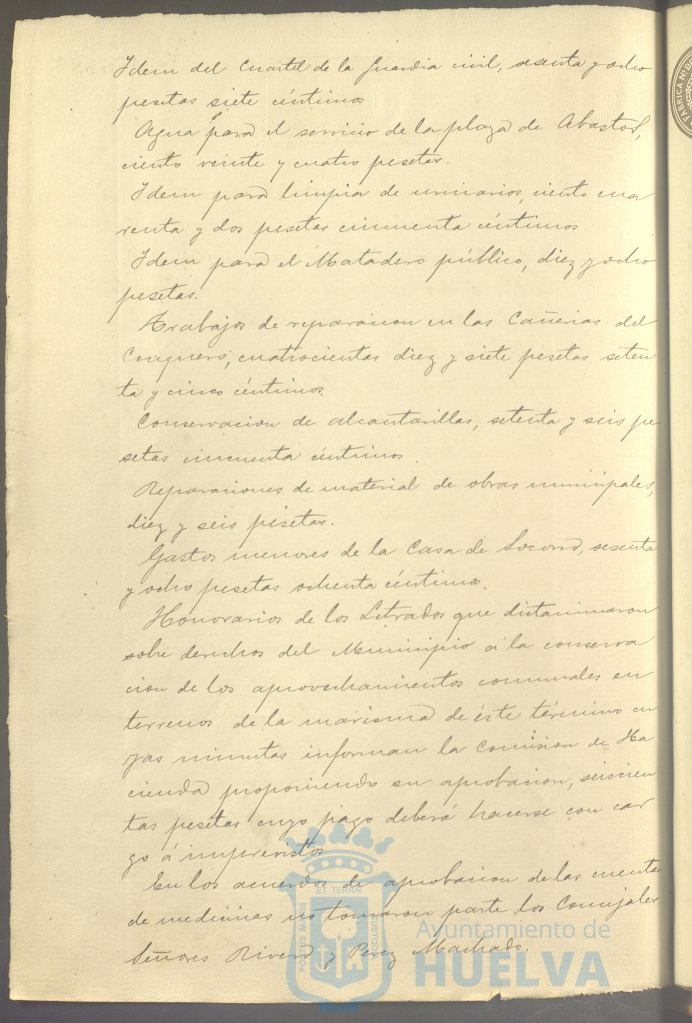 Idem del Cuartel de la Guardia civil, sesenta y ocho
pesetas siete céntimos
Agua para el servicio de la plaza de Abastos,
ciento veinte y cuatro pesetas.
Idem para limpia de urinarios, ciento cua
renta y dos pesetas cincuenta céntimos
Idem para el Matadero público, diez y ocho
pesetas.
Trabajos de reparacion en las Cañerias del
Conquero, cuatrocientas diez y siete pesetas seten
ta y cinco céntimos.
Conservacion de alcantarillas, setenta y seis pe
setas cincuenta céntimos.
Reparaciones de material de obras municipales,
diez y seis pesetas.
Gastos menores de la Casa de Socorro, sesenta
y ocho pesetas ochenta céntimos.
Honorarios de los Letrados que dictaminaron
sobre derechos del Municipio á la conserva
cion de los aprovechamientos comunales en
terrenos de la marisma de éste término cu
yas minutas informan la Comision de Ha
cienda proponiendo su aprobacion, seiscien
tas pesetas cuyo pago deberá hacerse con car
go á imprevistos
En los acuerdos de aprobacion de las cuentas
de medicinas no tomaron parte los Concejales
Señores Rivero y Perez Machado.
Ayuntamiento de
HUELVA
PORTUS MARIS
ET TERRÆ
CUSTODIA
FABRICA N